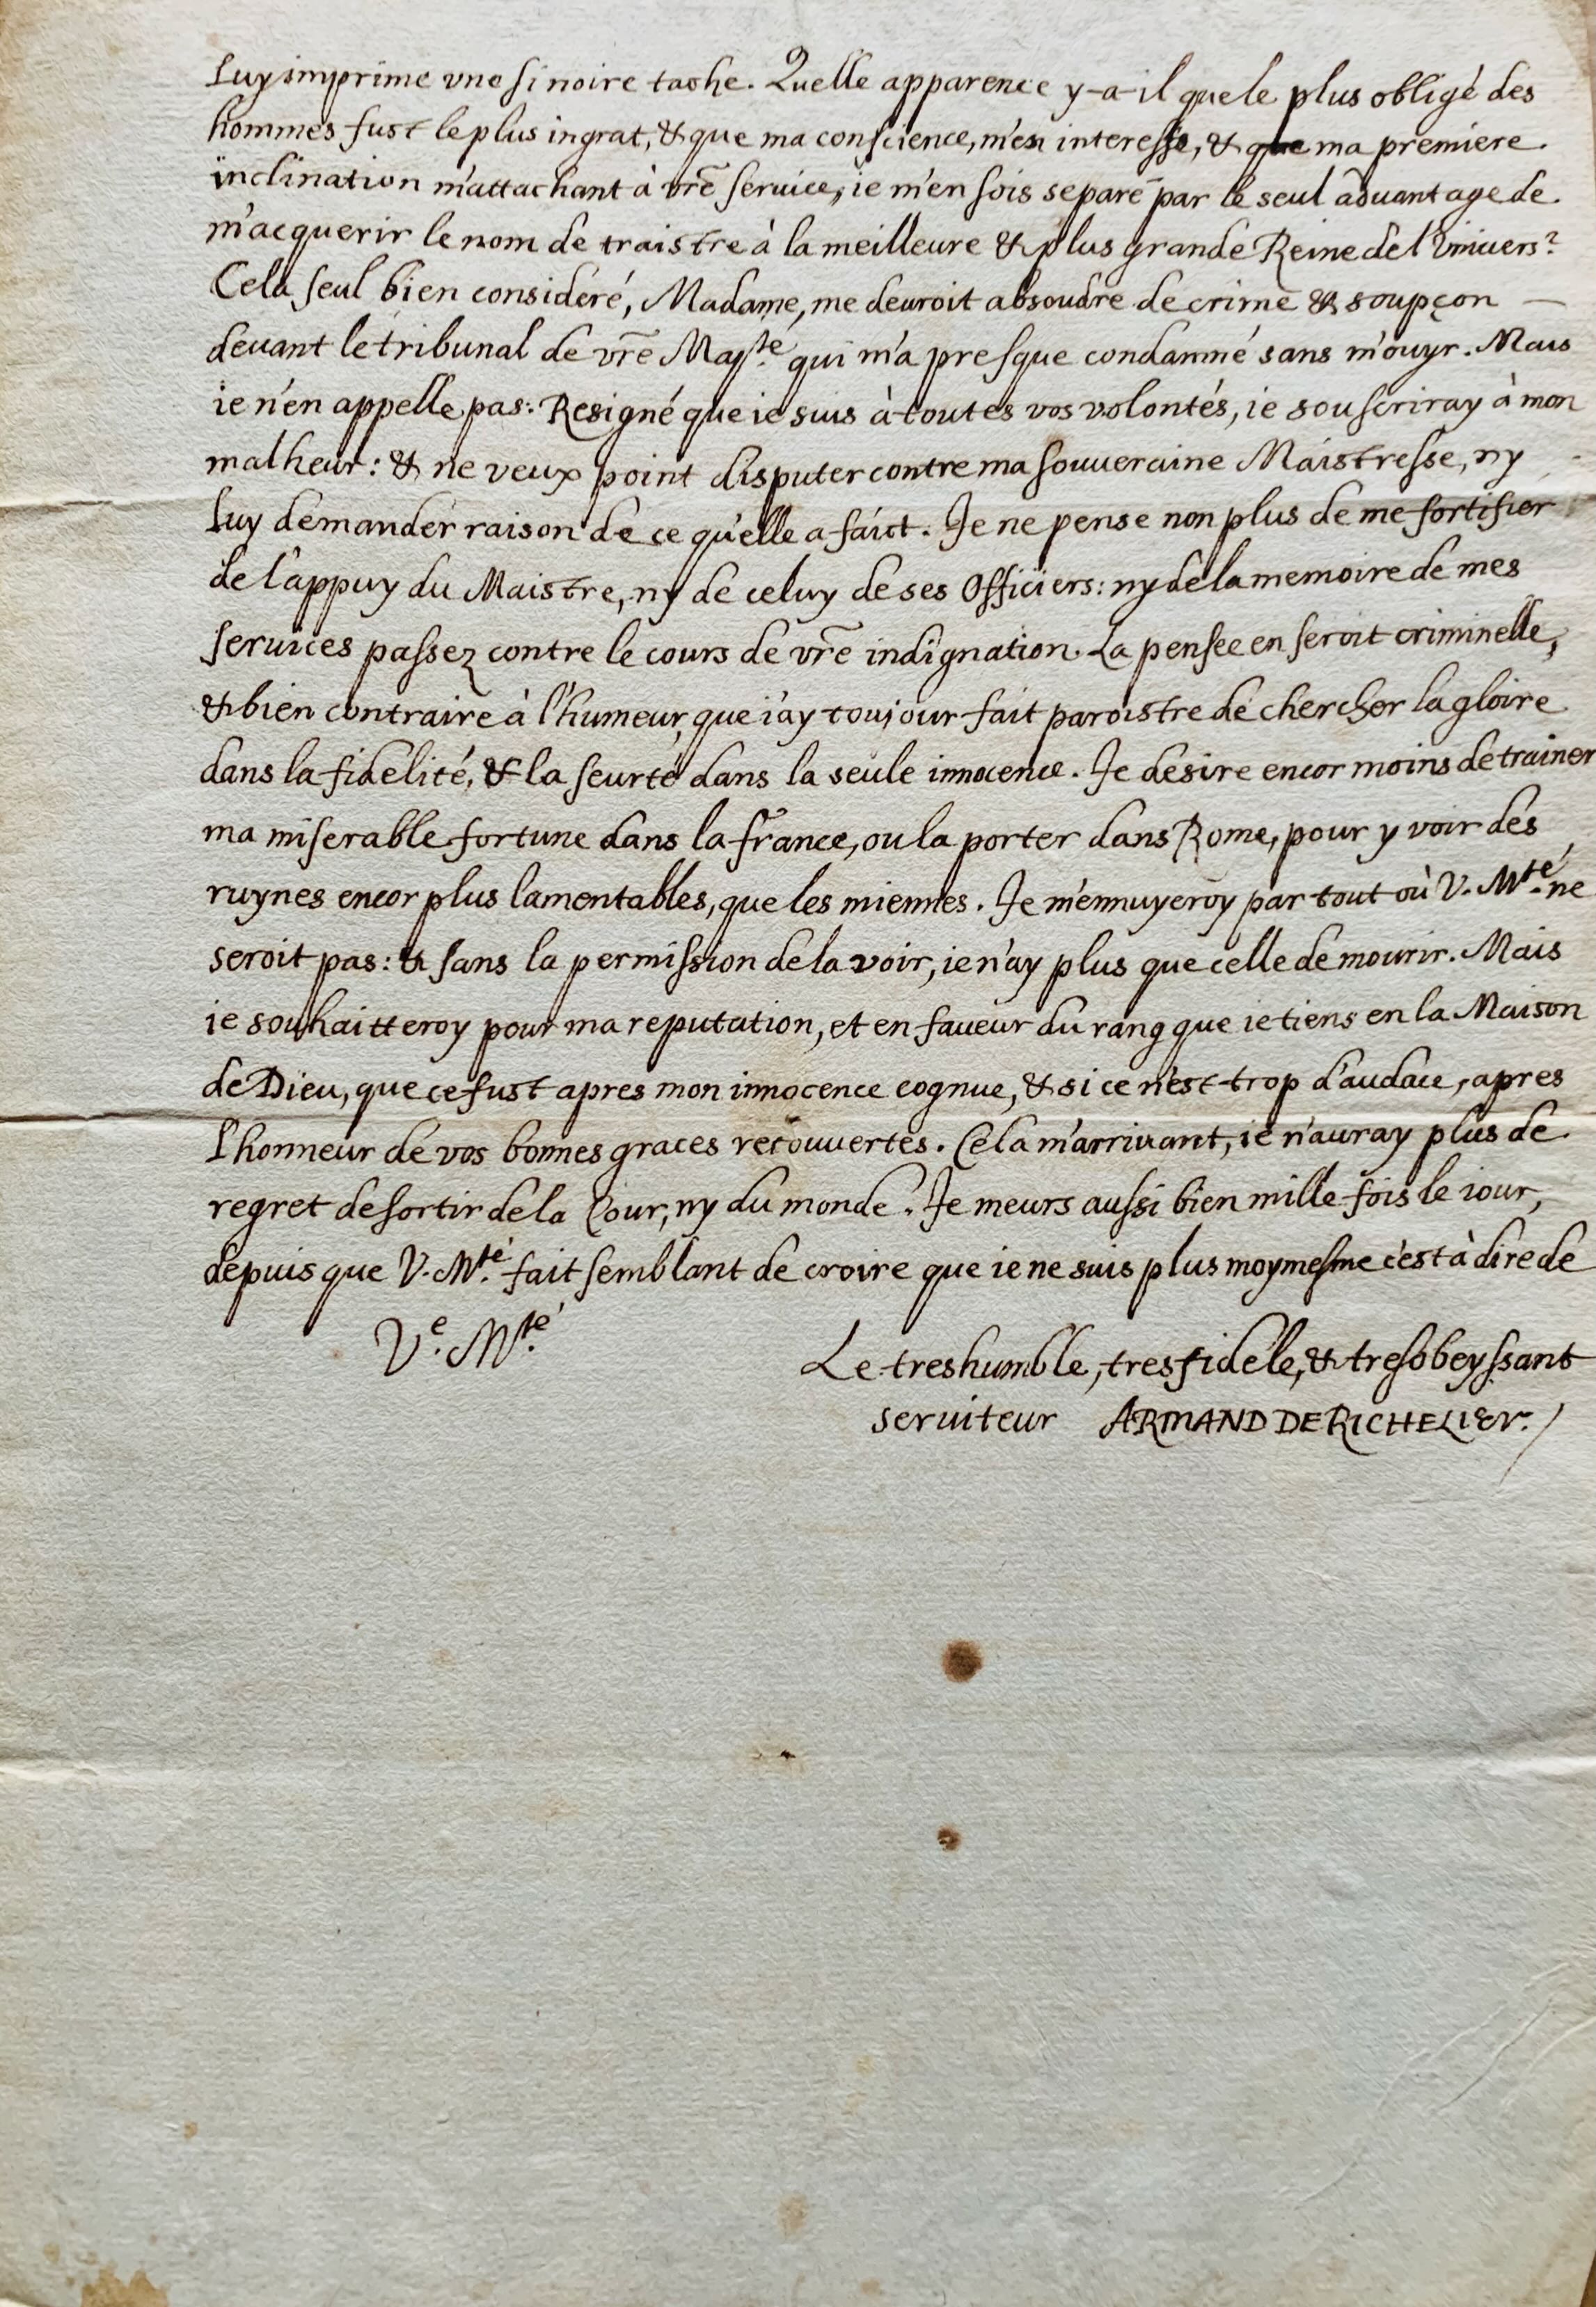 luy imprime vne si noire tache. Quelle apparence y-a-il que le plus obligé des
hommes fust le plus ingrat, & que ma conscience, m'en interesse, & que ma premiere
inclination m'attachant à vr̃e seruice, ie m'en sois separé par le seul aduantage de
m'acquerir le nom de traistre à la meilleure & plus grande Reine de l'Vniuers?
Cela seul bien consideré, Madame, me deuroit absoudre de crime & soupçon —
deuant le tribunal de vr̃e Majté. qui m'a presque condamné sans m'ouyr. Mais
ie n'en appelle pas: Resigné que ie suis à toutes vos volontés, ie souscriray à mon
malheur: & ne veux point disputer contre ma souueraine Maistresse, ny
luy demander raison de ce qu'elle a faict. Je ne pense non plus de me fortifier
de l'appuy du Maistre, ny de celuy de ses Officiers: ny de la memoire de mes
seruices passez contre le cours de vr̃e indignation. La pensee en seroit criminelle,
& bien contraire à l'humeur, que i'ay toujour fait paroistre de chercher la gloire
dans la fidelité, & la seurté dans la seule innocence. Je desire encor moins de trainer
ma miserable fortune dans la france, ou la porter dans Rome, pour y voir des
ruynes encor plus lamentables, que les miennes. Je m'ennuyeroy par tout où V. Mté. ne
seroit pas: & sans la permission de la voir, ie n'ay plus que celle de mourir. Mais
ie souhaitteroy pour ma reputation, et en faueur du rang que ie tiens en la Maison
de Dieu, que ce fust apres mon innocence cognue, & si ce n'est trop d'audace, apres
l'honneur de vos bonnes graces recouuertes. Cela m'arriuant, ie n'auray plus de
regret de sortir de la Cour, ny du monde. Je meurs aussi bien mille fois le iour,
depuis que V. Mté. fait semblant de croire que ie ne suis plus moymesme c'est à dire de
Ve. Mté.
Le treshumble, tresfidele, & tresobeyssant
seruiteur ARMAND DE RICHELIEV.